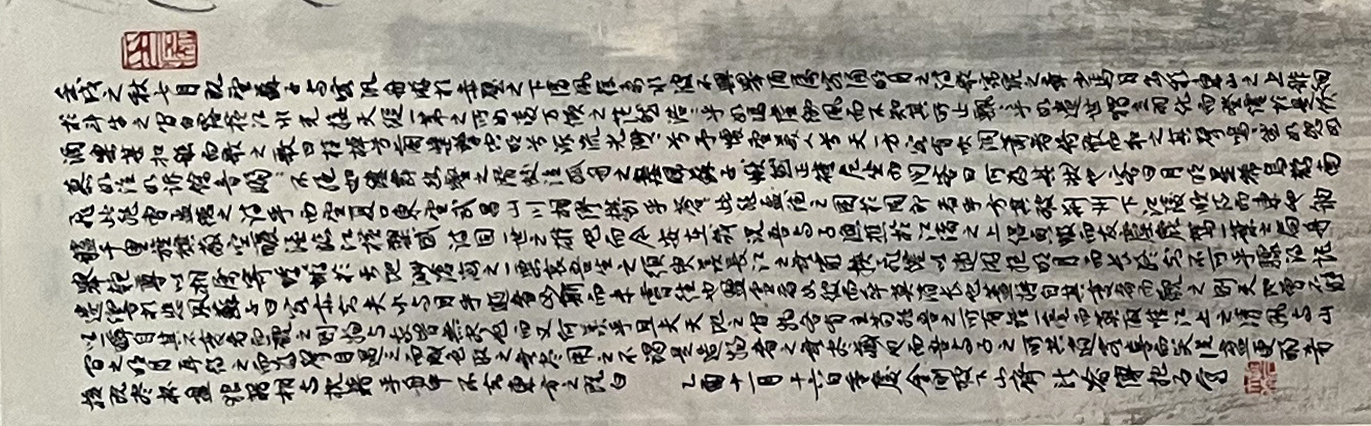 壬戌之秋七月既望蘇子與客泛舟遊於赤壁之下清風徐來水波不興舉酒屬客誦明月之詩歌窈窕之章少焉月出於東山之上徘徊
於斗牛之間白露橫江水光接天縱一葦之所如凌萬頃之茫然浩浩乎如馮虛御風而不知其所止飄飄乎如遺世獨立羽化而登仙於是飲
酒樂甚扣舷而歌之歌曰桂棹兮蘭槳擊空明兮泝流光渺渺兮予懷望美人兮天一方客有吹洞簫者倚歌而和之其聲嗚嗚然如怨如
慕如泣如訴餘音嫋嫋不絕如縷舞幽壑之潛蛟泣孤舟之嫠婦蘇子愀然正襟危坐而問客曰何為其然也客曰月明星稀烏鵲南
飛此非曹孟德之詩乎西望夏口東望武昌山川相繆鬱乎蒼蒼此非孟德之困於周郎者乎方其破荊州下江陵順流而東也舳
艫千里旌旗蔽空釃酒臨江橫槊賦詩固一世之雄也而今安在哉況吾與子漁樵於江渚之上侶魚蝦而友麋鹿駕一葉之扁舟
舉匏尊以相屬寄蜉蝣於天地渺滄海之一粟哀吾生之須臾羨長江之無窮挾飛仙以遨遊抱明月而長終知不可乎驟得託
遺響於悲風蘇子曰客亦知夫水與月乎逝者如斯而未嘗往也盈虛者如彼而卒莫消長也蓋將自其變者而觀之則天地曾不能
以一瞬自其不變者而觀之則物與我皆無盡也而又何羨乎且夫天地之間物各有主苟非吾之所有雖一毫而莫取惟江上之清風與山
間之明月耳得之而為聲目遇之而成色取之無禁用之不竭是造物者之無盡藏也而吾與子之所共適客喜而笑洗盞更酌肴
核既盡杯盤狼籍相與枕藉乎舟中不知東方之既白 乙酉十一月十六日